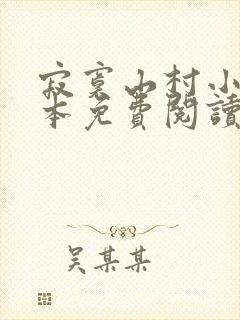 寂寞山村小
本免費閱讀
吴某某